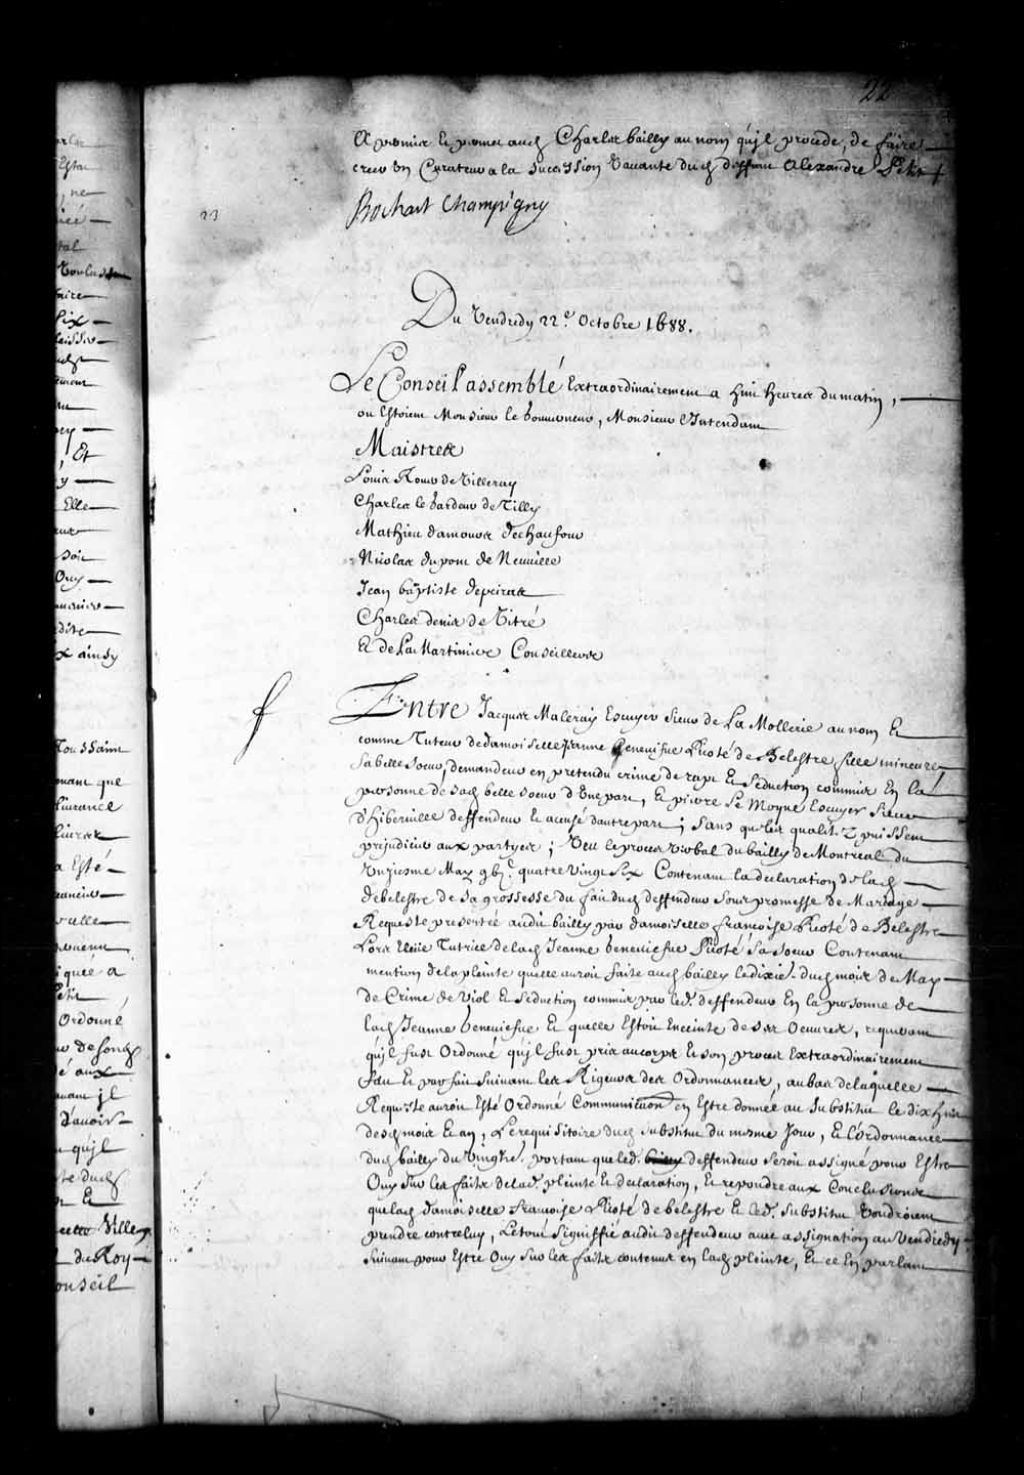 22
Et permis et permet aud. Charles bailly au nom qu'jl procede, de faire
creer un Curateur a la succession vacante dud. deffunt Alexandre Petit
23
Bochart Champigny
Du Vendredy 22.e Octobre 1688.
Le Conseil assemblé Extraordinairement a huit heures du matin,
ou Estoient Monsieur le Gouverneur, Monsieur L'Intendant
Maistres
Louis Rouer de Villeray
Charles le Gardeur de Tilly
Mathieu damours deschaufour
Nicolas dupont de Neuville
Jean baptiste depeiras
Charles denis de Vitré
Et de La Martiniere Conseillers
Entre Jacques Maleray Escuyer Sieur de La Mollerie au nom Et
comme Tuteur de damoiselle Jeanne Geneviefve Picoté de Belestre fille mineure
sa belle soeur, demandeur en pretendu crime de rapt Et Seduction commise En la
personne de sad. belle soeur d'Une part, Et pierre Le Moyne Escuyer Sieur
d'Hiberville deffendeur Et accusé d'autre part; Sans que les qualitez puissent
prejudicier aux partyes; Veu le proces Verbal du bailly de Montreal du
Unziesme May gbi.c quatre vingt Six Contenant la declaration de lad.
de belestre de sa grossesse du fait dud. deffendeur sous promesse de Mariage
Requeste presentée audit bailly par damoiselle francoise Picoté de Belestre
Lors Eleüe Tutrice de lad. Jeanne Geneviefve Picoté sa soeur Contenant
mention de la pleinte quelle auroit faite aud. bailly le dixie. dud. mois de May
de Crime de Viol Et Seduction commis par led. deffendeur En la personne de
lad. Jeanne Geneviefve Et quelle Estoit Enceinte de ses Oeuvres, requerant
qu'jl fust Ordonné qu'jl fust pris au corps Et son proces Extraordinairement
fait Et parfait suivant les Rigeurs des Ordonnances, au bas de laquelle
Requeste auroit Esté Ordonné Communication en Estre donnée au Substitut le dix huit
desd. mois Et an, Le requisitoire dud. substitut du mesme Jour, Et L'ordonnance
dud. bailly du vingtie. portant que led. deffendeur seroit assigné pour Estre
Ouy sur les faits de lad. pleinte Et declaration, Et repondre aux Conclusions
que lad. damoiselle francoise Picoté de belestre Et led. substitut Voudroient
prendre contre luy, Le tout signiffié audit deffendeur avec assignation au Vendredy
suivant pour Estre Ouy sur les faits contenus en lad. pleinte, Et ce En parlant